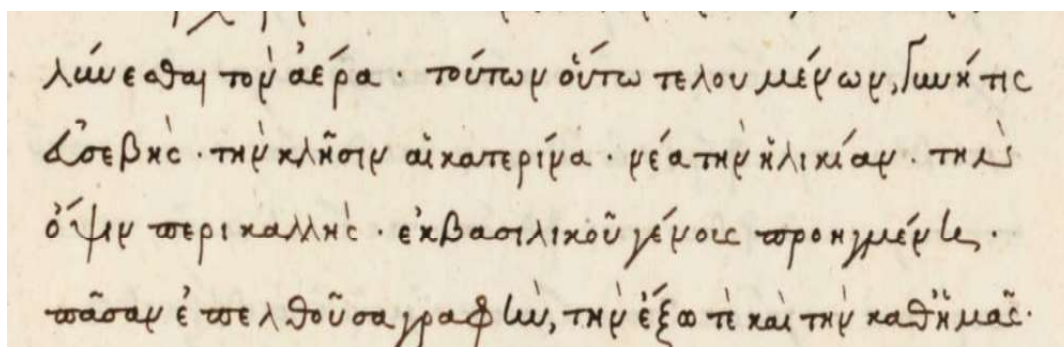 λύνεσθαι τὸν ἀέρα · τούτων οὕτω τελουμένων, γυνή τις
εὐσεβὴς · τὴν κλῆσιν αἰκατερίνα · νέα τὴν ἡλικίαν · τὴν
ὄψιν περικαλλὴς · ἐκ βασιλικοῦ γένους προηγμένη ·
πᾶσαν ἐπελθοῦσα γραφὴν, τὴν ἔξω τὲ καὶ τὴν καθ' ἡμᾶς ·